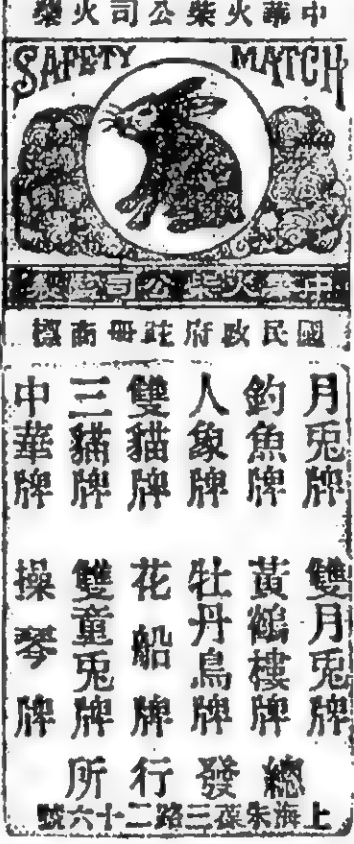 中華火柴公司火
SAFETY MATCH
中華火柴公司監製
國民政府註冊商標
月兎牌
釣魚牌
人象牌
雙貓牌
三貓牌
中華牌
雙月兎牌
黃鶴樓牌
牡丹鳥牌
花船牌
雙童兎牌
操琴牌
總發行所
上海朱葆三路二十六號